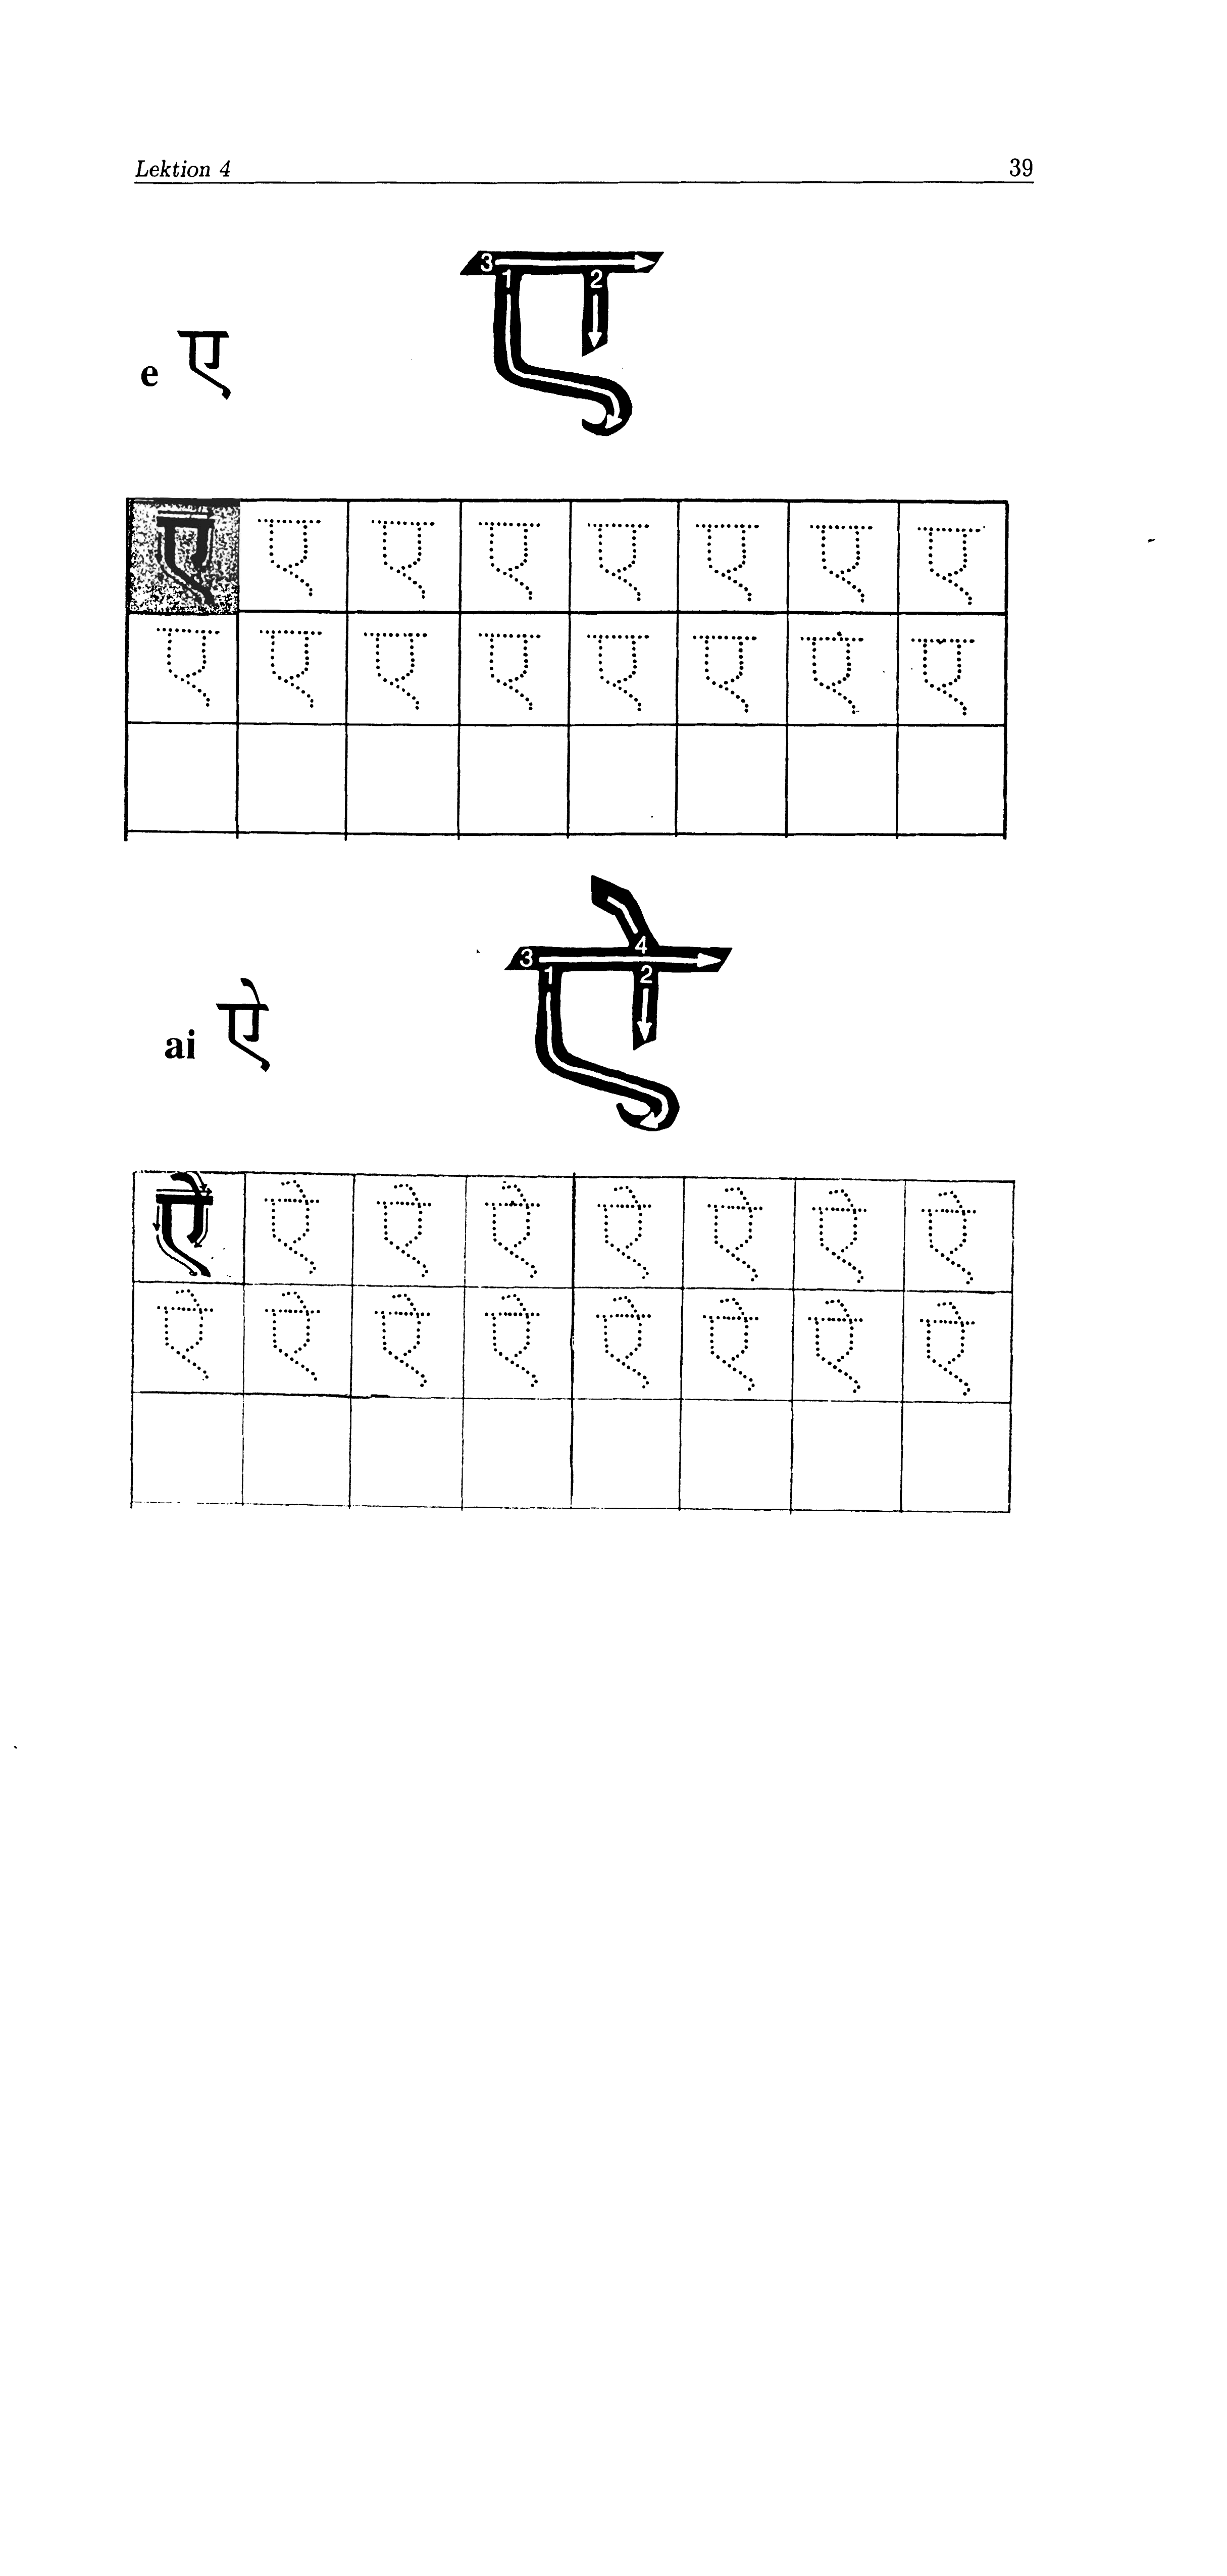 Lektion 4 39
3 1 2
e ए
ए ए ए ए ए ए ए ए
ए ए ए ए ए ए ए ए
4
3 1 2
ai ऐ
ऐ ऐ ऐ ऐ ऐ ऐ ऐ ऐ
ऐ ऐ ऐ ऐ ऐ ऐ ऐ ऐ